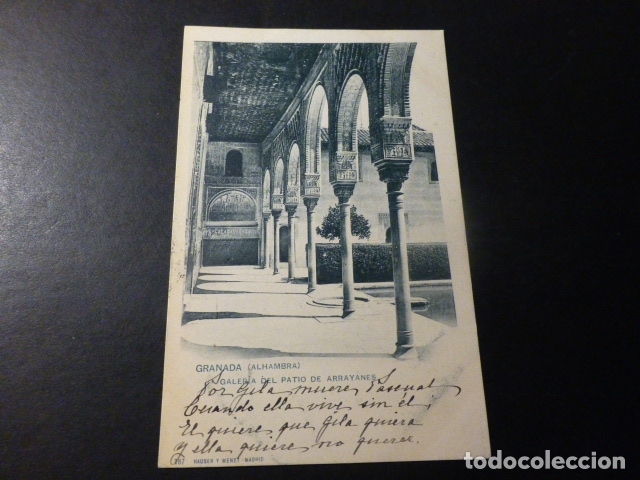 GRANADA (ALHAMBRA)
GALERIA DEL PATIO DE ARRAYANES
Por Gila muere Pascual
Cuando ella vive sin él;
El quiere que Gila quiera
y ella quiere no querer.
187 HAUSER Y MENET. MADRID
todocoleccion.net